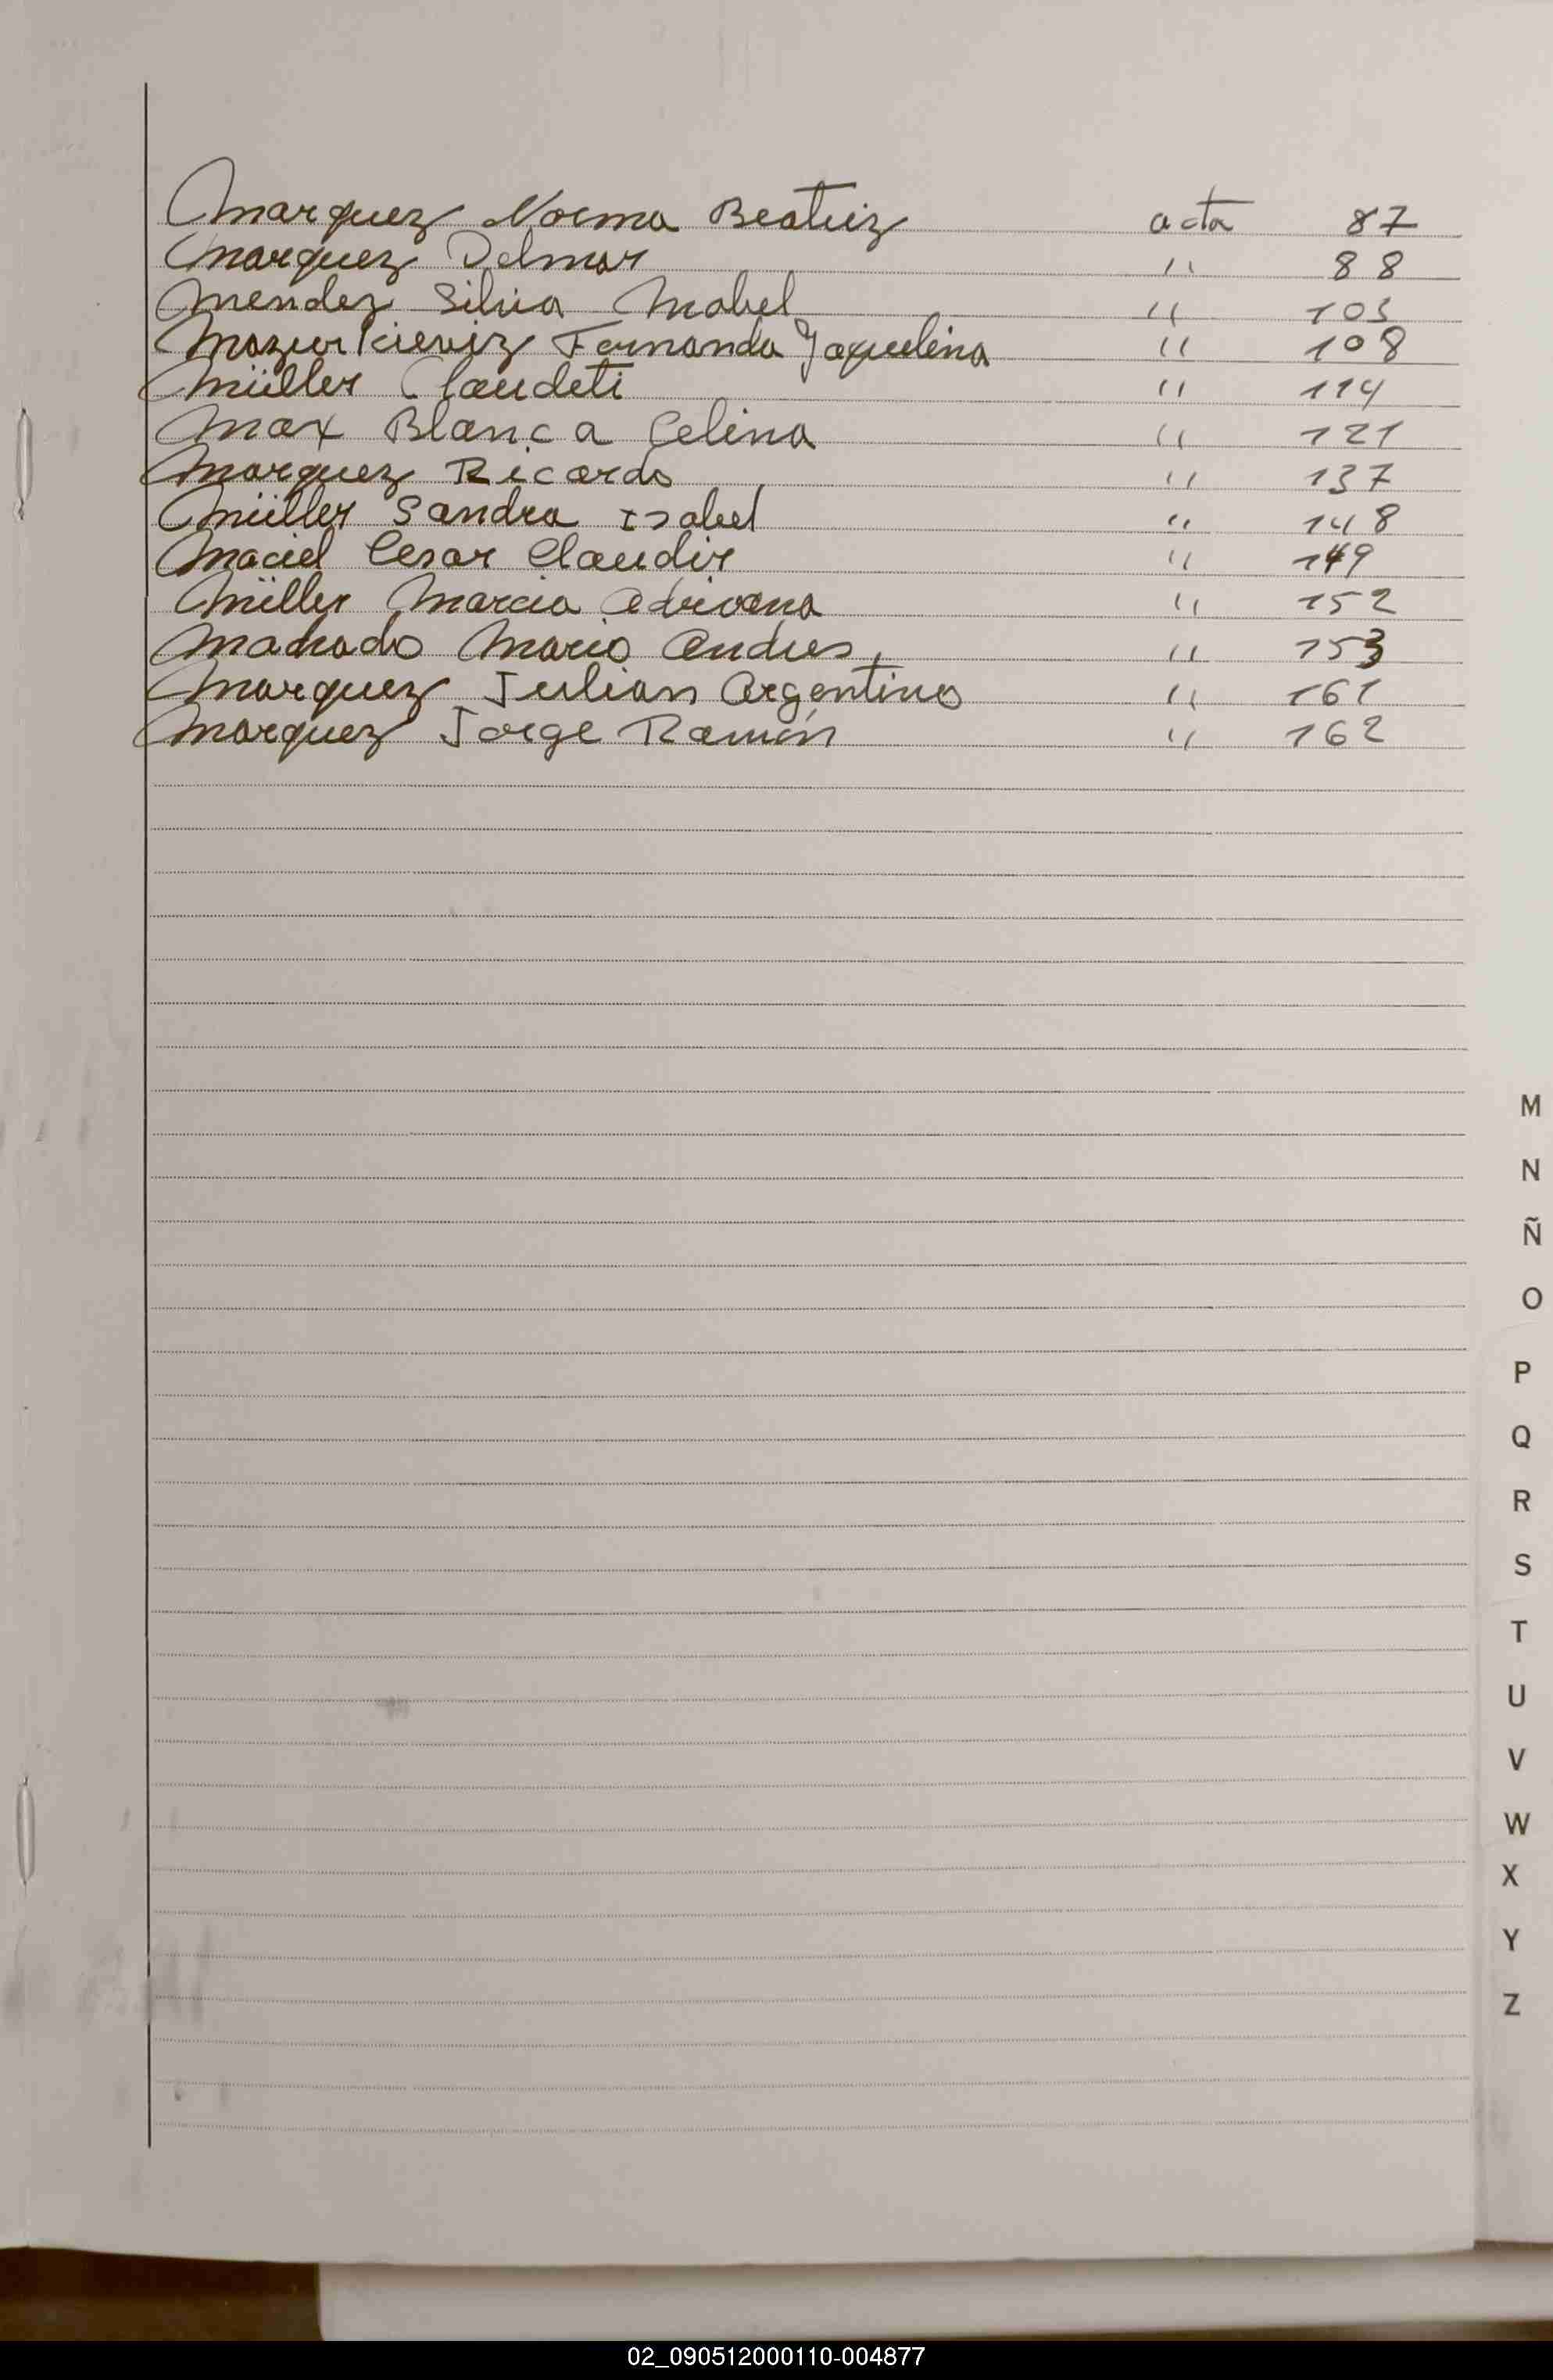 Marquez Norma Beatriz acta 87
Marquez Delmar " 88
Mendez Silvia Mabel " 103
Mazurkieviz Fernanda Jaquelina " 108
Müller Claudeti " 114
Max Blanca Celina " 121
Marquez Ricardo " 137
Müller Sandra Isabel " 148
Maciel Cesar Claudir " 149
Müller Marcia Adriana " 152
Machado Mario Andres, " 153
Marquez Julian Argentino " 161
Marquez Jorge Ramón " 162
M
N
Ñ
O
P
Q
R
S
T
U
V
W
X
Y
Z
02_090512000110-004877